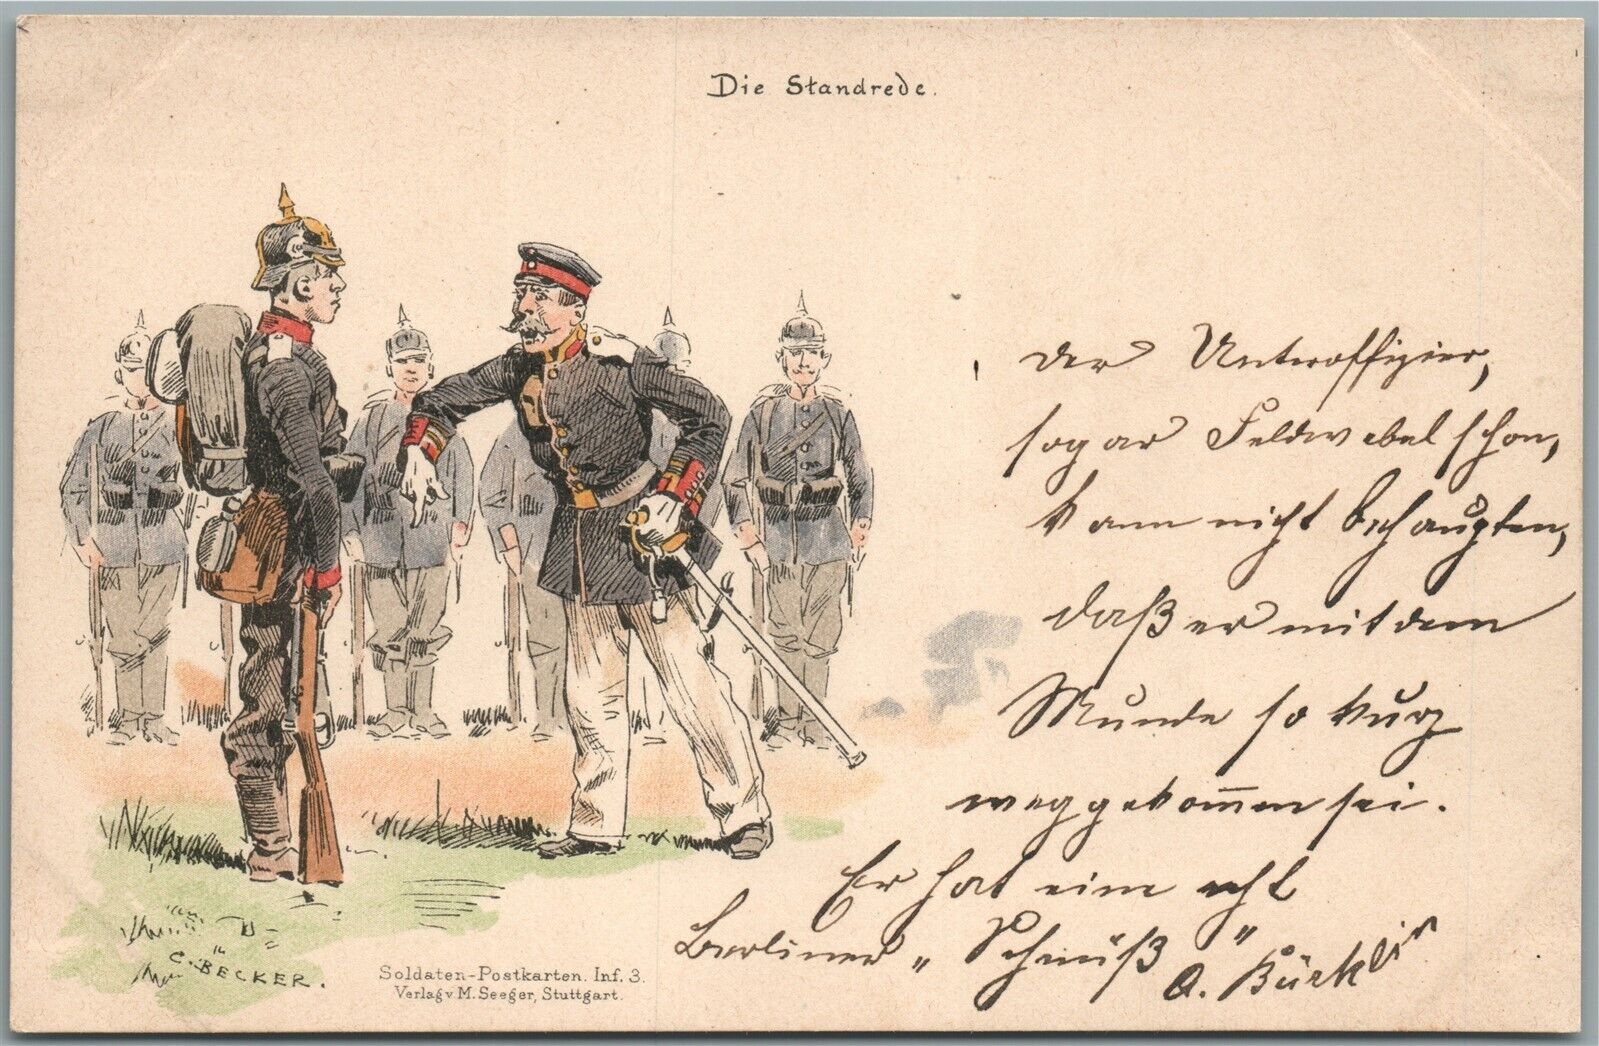 Die Standrede.
der Unteroffizier,
sogar Feldwebel schon,
kann nicht behaupten,
daß er mit dem
Munde so kurz
weggekom̄en sei.
Er hat eine echt
Berliner „Schnüß"
A. Bürklin
C. BECKER.
Soldaten-Postkarten. Inf. 3.
Verlag v M. Seeger, Stuttgart.